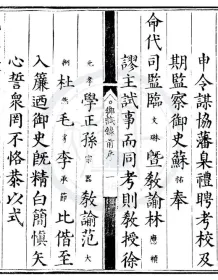 申令謀協藩臬禮聘考校及
期監察御史蘇祐奉
命代司監臨文琳暨教諭林應頼
謬主試事而同考則教授徐
興學錄前序
元孝學正孫宗器教諭范大
杜然毛李承節比偕至
入簾迺御史既精白簡愼矢
心誓衆罔不恪恭以式